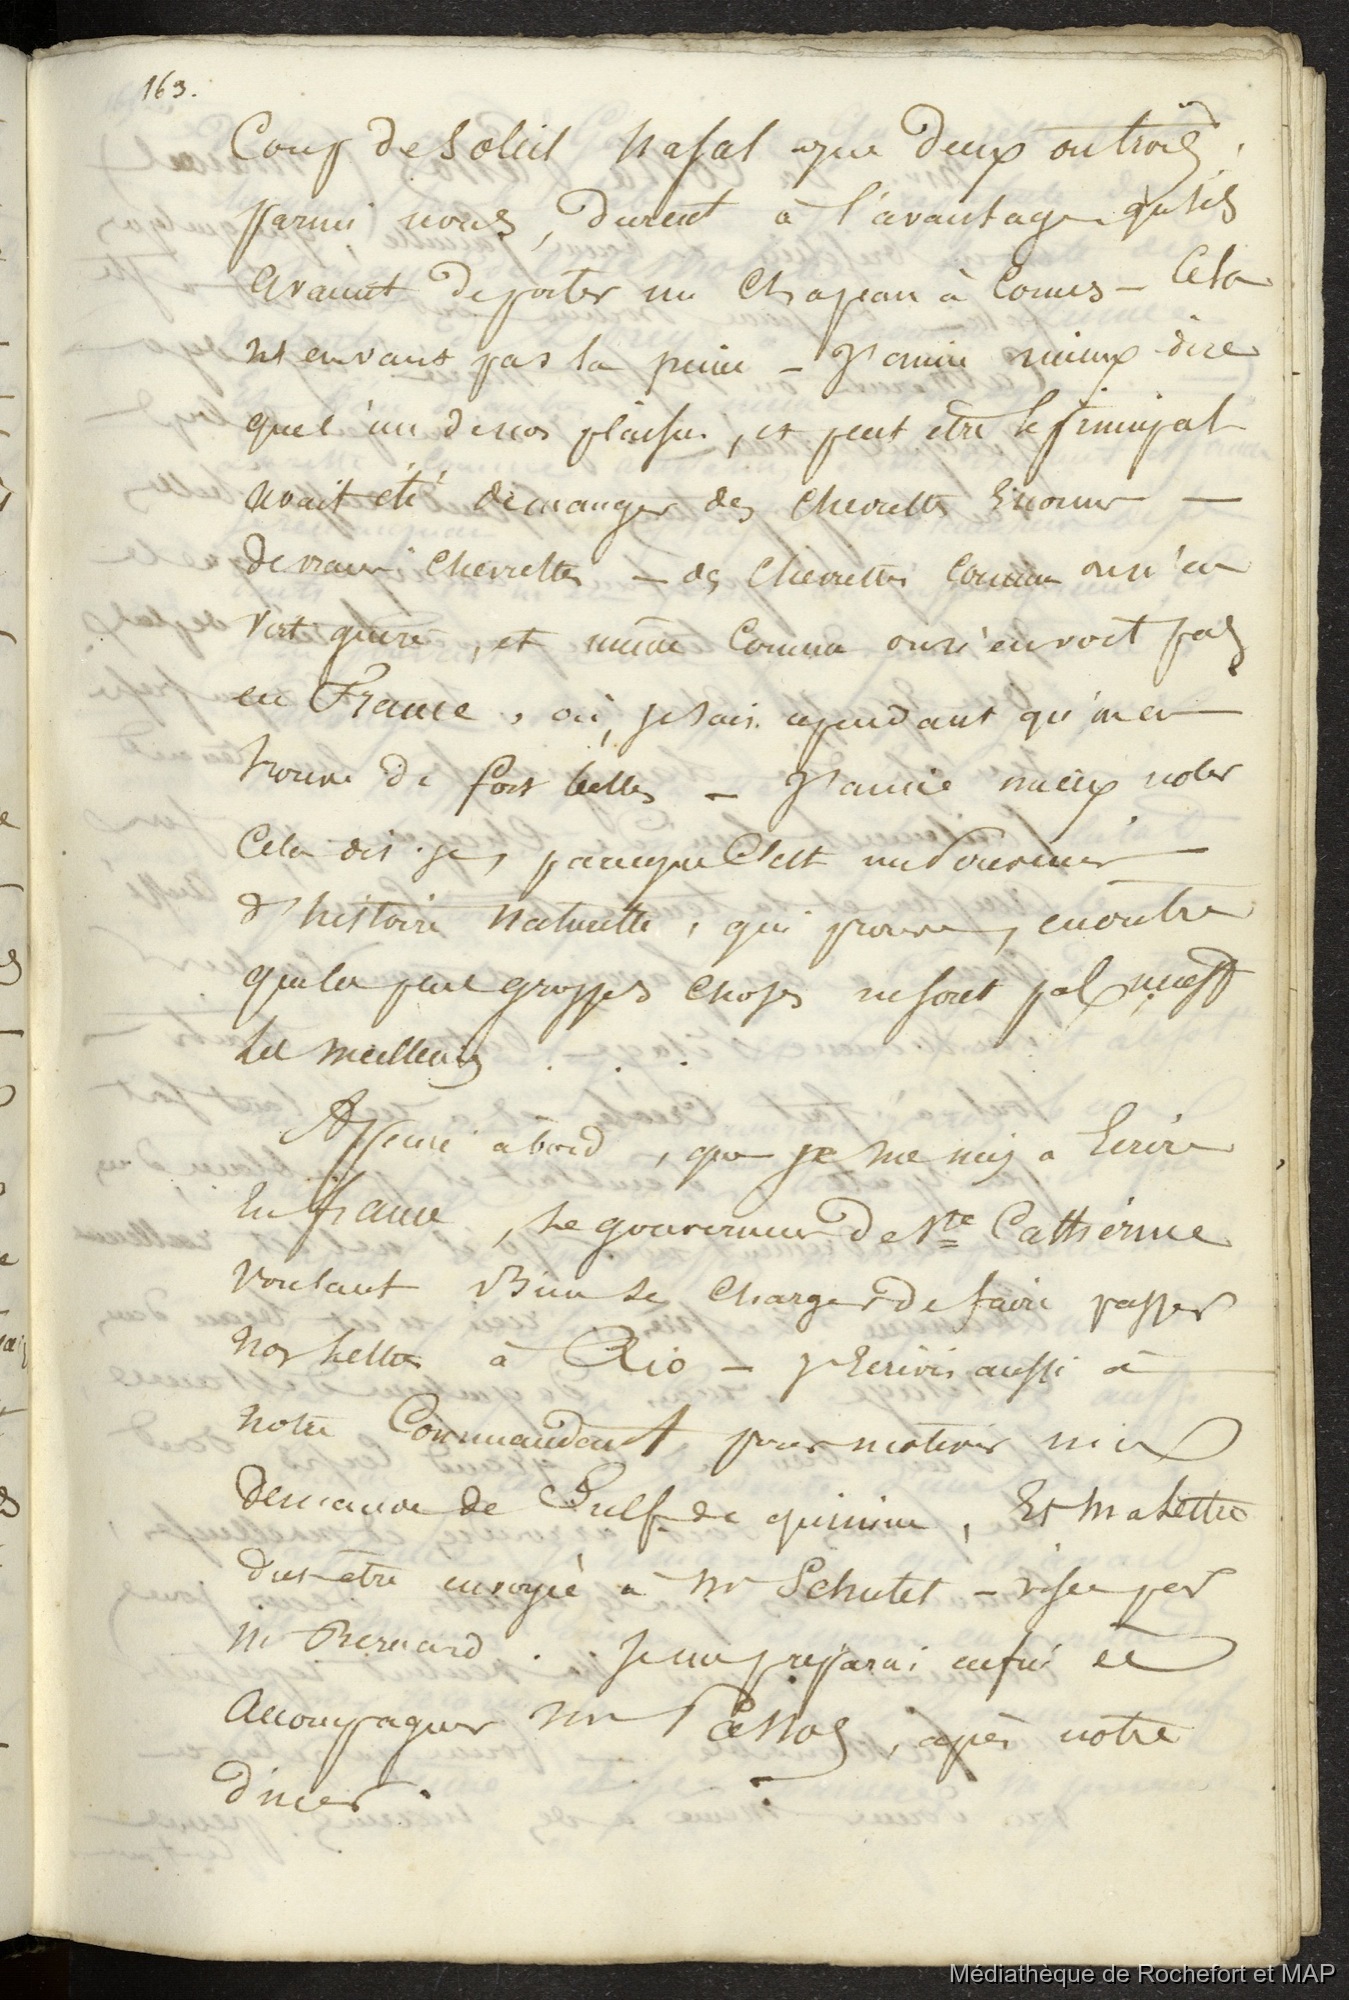 163.
Coup de Soleil nasal que deux ou trois,
parmi nous, durent à l'avantage qu'ils
avaient de porter un Chapeau à Cornes - Cela
n'en vaut pas la peine - J'aime mieux dire
que l'un de nos plaisirs, et peut être le principal
avait été de manger des Chevrettes Enormes -
de vraies Chevrettes - des Chevrettes Comme on n'en
voit guère, et même Comme on n'en voit pas
en France, où, je sais cependant qu'on en
trouve de fort belles - J'aime mieux noter
Cela dis-je, parceque C'est un Souvenir
d'histoire Naturelle, qui prouve, en outre
que les plus grosses Choses ne sont pas
les meilleures . . .
à bord, que je me mis a Ecrire
En france, le gouverneur de Ste Cathérine
voulant Bien se Charger de faire passer
nos lettres à Rio - J'Ecrivis aussi à
notre Commandant pour motiver une
demande de Sulf. de quinine, Et Ma Lettre
dut être envoyée à Mr Schutel - visée par
Mr Bernard . . Je me préparai enfin
accompagner Mr , après notre
diner.
Médiathèque de Rochefort et MAP